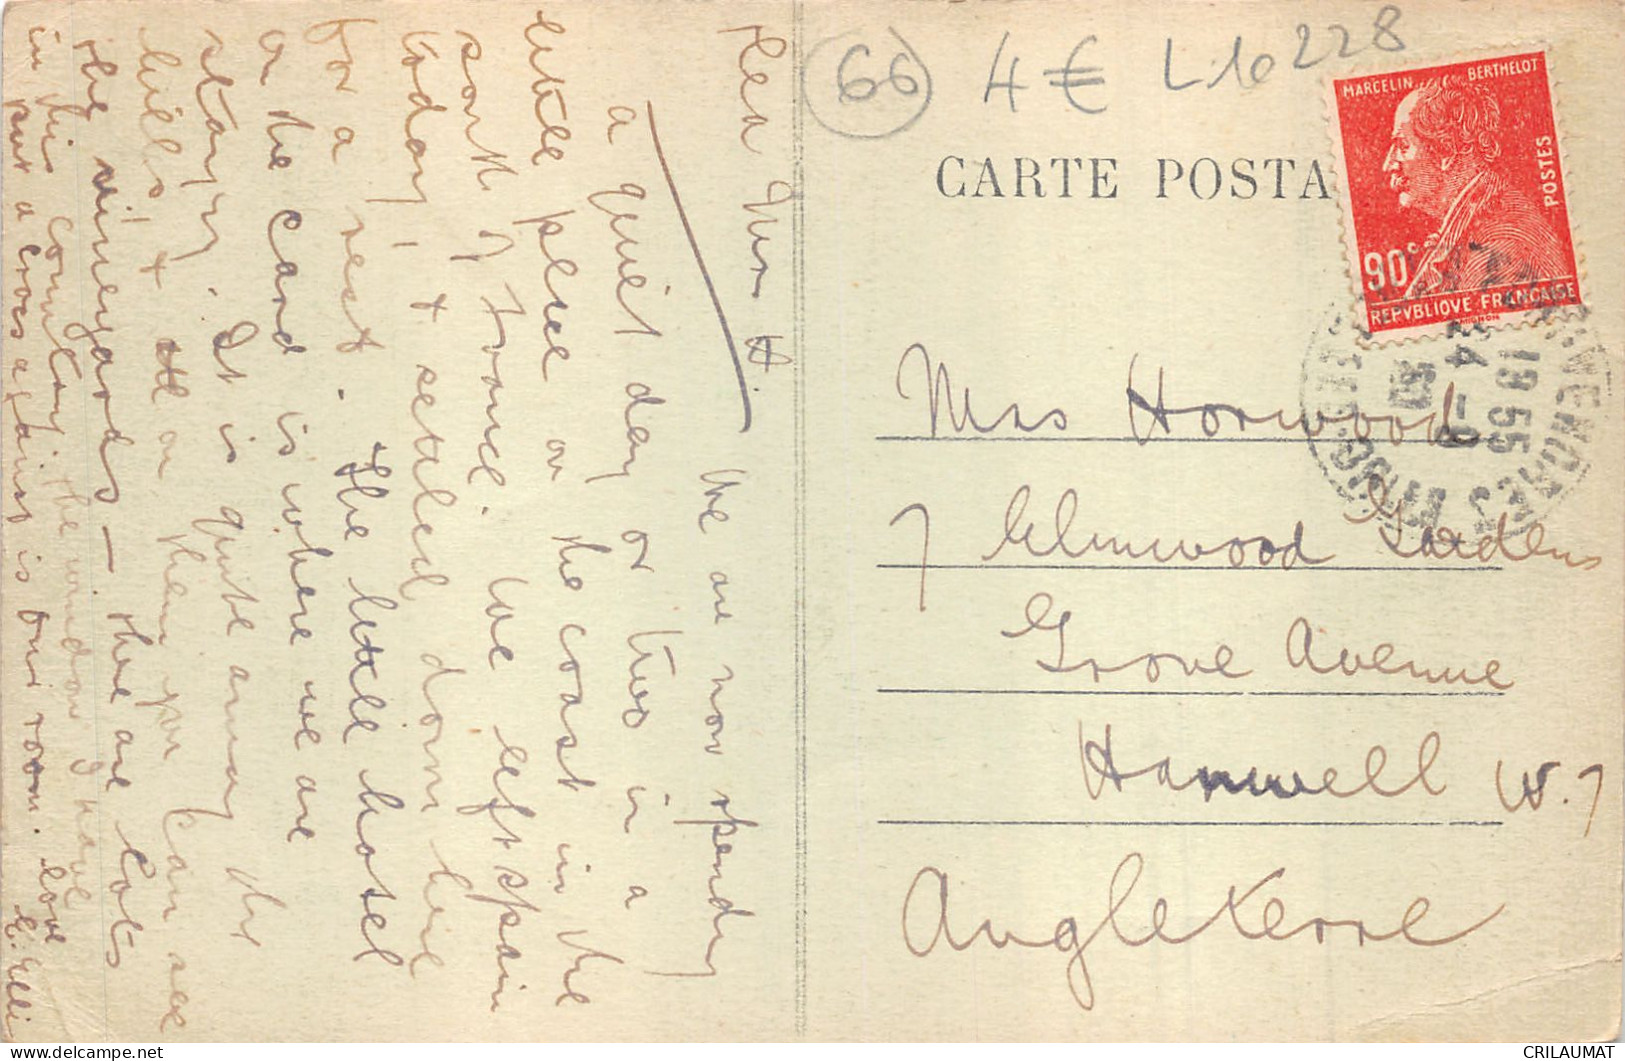 66 4€ L10228
CARTE POSTA
MARCELIN BERTHELOT
POSTES
90c
REPVBLIQVE FRANÇAISE
19 55
24-9
30
Dear Mrs H. We are now spending
a quiet day or two in a
little place on the coast in the
south of France. We left Spain
today, & settled down here
for a rest. The little hotel
on the card is where we are
staying. It is quite among the
hills & on them you can see
the vineyards — there are lots
in this country. The window I have
put a cross against is our room. Love
E. Elli
Mrs Horwood
7 Elmwood Gardens
Grove Avenue
Hanwell W.7
Angleterre
delcampe.net
CRILAUMAT